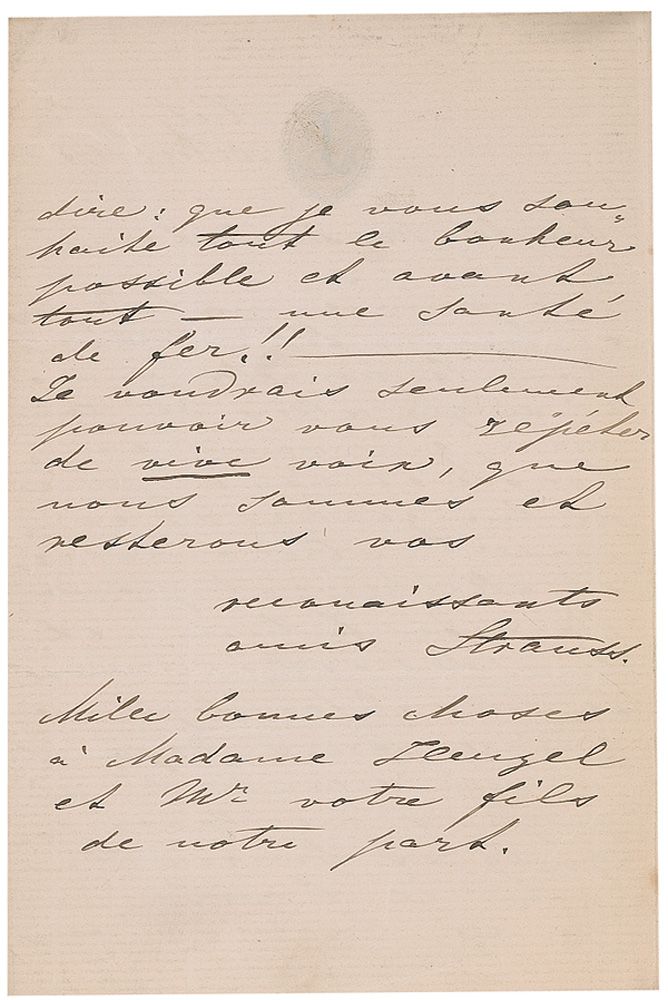 dire: que je vous sou"
haite tout le bonheur
possible et avant
tout — une santé
de fer!! —
Je voudrais seulement
pouvoir vous répéter
de vive voix, que
nous sommes et
resterons vos
reconaissants
amis Strauss.
Mille bonnes choses
à Madame Heugel
et Mr votre fils
de notre part.